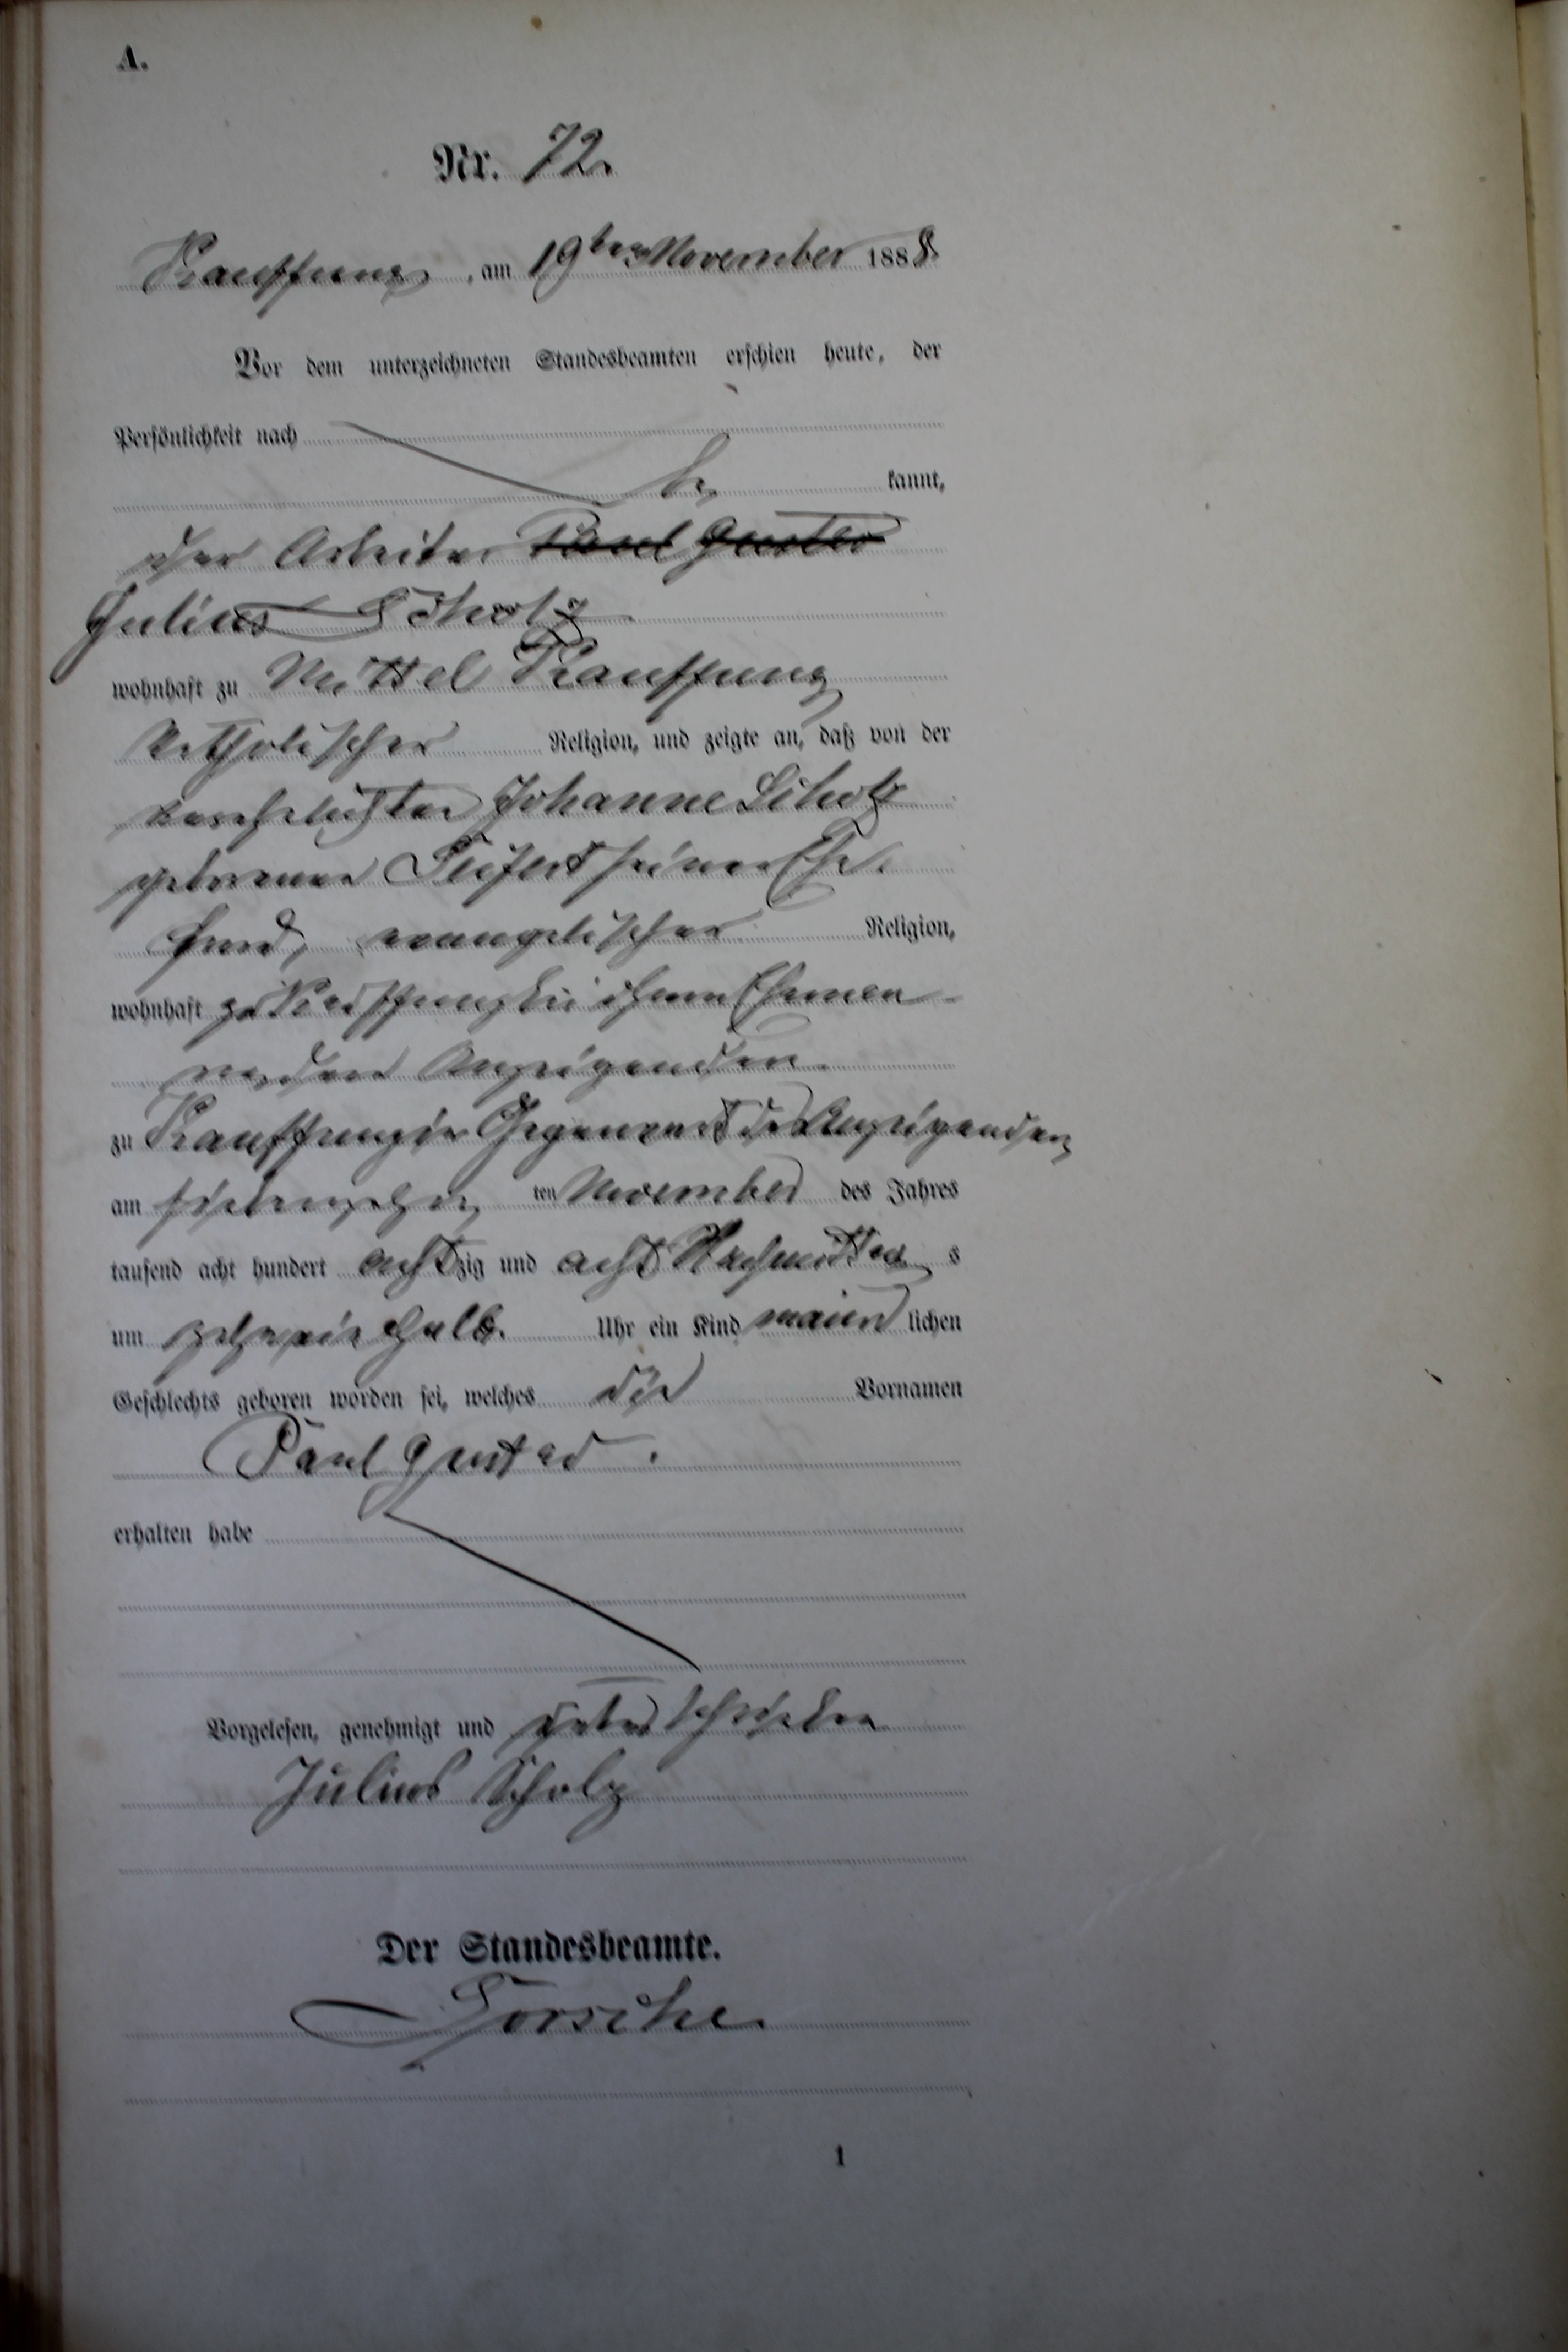 A.
Nr. 72.
Kauffung, am 19ten November 1888.
Vor dem unterzeichneten Standesbeamten erschien heute, der
Persönlichkeit nach
be kannt,
der Arbeiter Paul Gustav
Julius Scholz
wohnhaft zu Mittel Kauffung
katholischer Religion, und zeigte an, daß von der
verehelichten Johanne Scholz
geborenen Seifert seiner Ehe-
frau, evangelischer Religion,
wohnhaft zu Kauffung bei ihrem Ehemann
Anzeigenden.
zu Kauffung in Gegenwart des Anzeigenden
am siebenzehn ten November des Jahres
tausend acht hundert achtzig und acht Nachmittag s
um halb Uhr ein Kind männlichen
Geschlechts geboren worden sei, welches die Vornamen
Paul Gustav.
erhalten habe
Vorgelesen, genehmigt und unterschrieben
Julius Scholz
Der Standesbeamte.
1